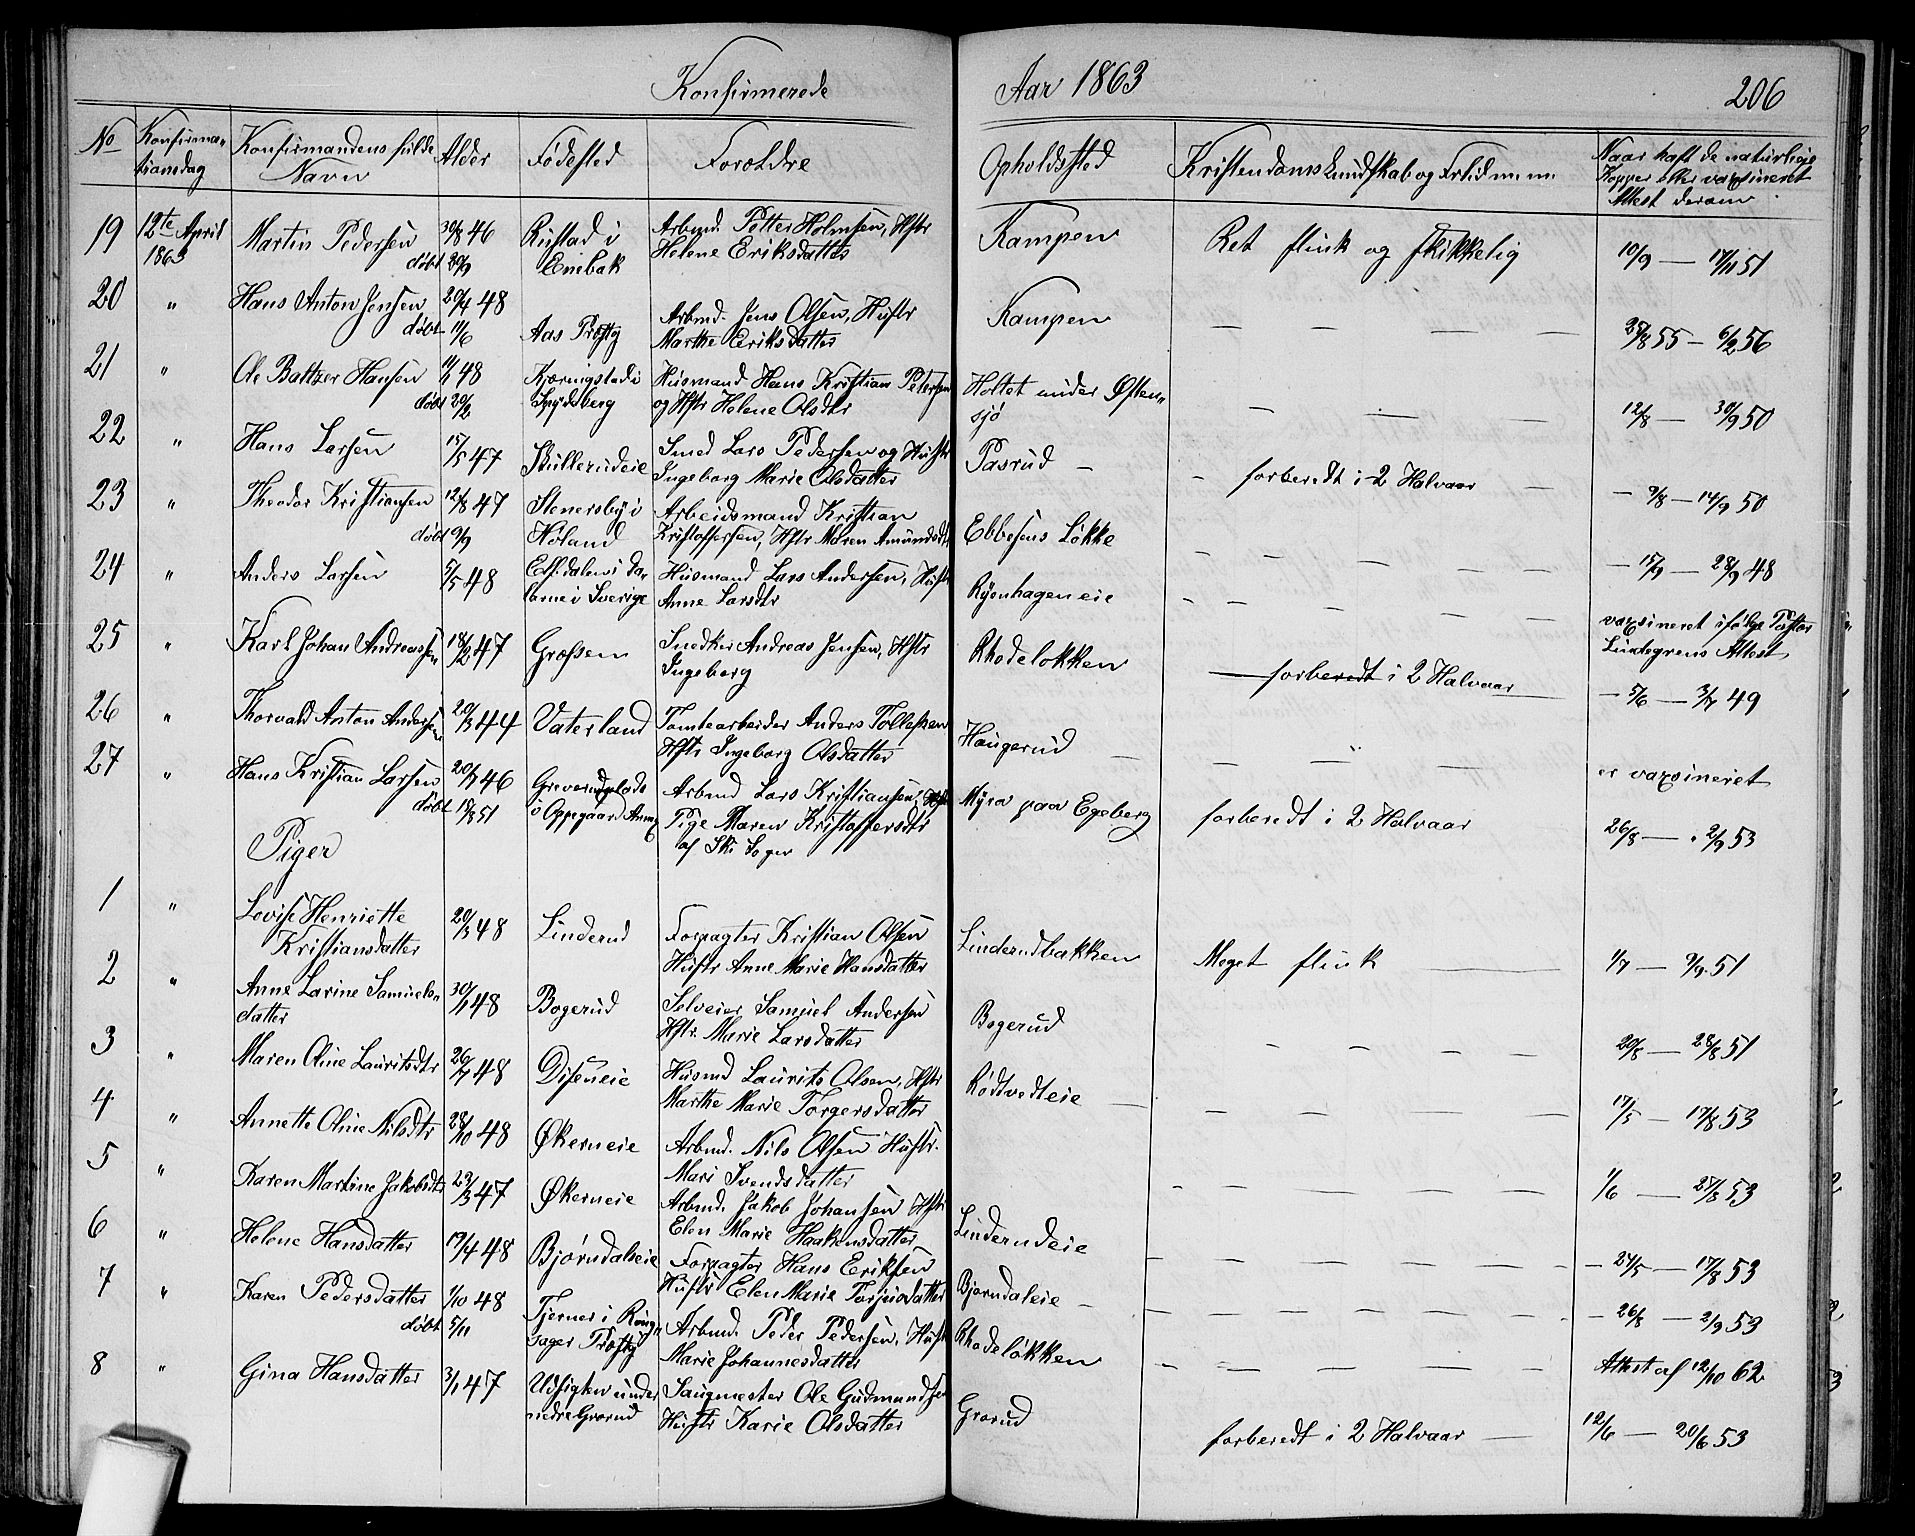 Konfirmerede Aar 1863 206
No Konfirma- Konfirmandens fulde Alder Fødested Forældre Opholdssted Kristendomskundskab og Forhold m.m. Naar haft de naturlige
tionsdag Navn Kopper eller vaxineret
Attest derom
19 12te April Martin Pedersen 30/8 46 Rustad i Arbmd. Petter Holmsen, Hstr Kampen Ret flink og skikkelig 10/9 — 17/11 51
1863 døbt 20/9 Enebak Helene Eriksdatter
20 " Hans Anton Jensen 20/4 48 Aas Præstg Arbmd. Jens Olsen, Hustr Kampen — — — — 25/8 55 — 6/2 56
døbt 11/6 Marthe Eriksdatter
21 " Ole Baltzer Hansen 11/1 48 Kjæringstad i Husmand Hans Kristian Petersen Holtet under Østen- — — — 12/8 — 30/9 50
døbt 20/2 Spydeberg og Hstr Helene Olsdtr sjø
22 " Hans Larsen 15/5 47 Skullerudeie Smed Lars Pedersen og Hustr Pasrud — — forberedt i 2 Halvaar — — 9/8 — 14/9 50
Ingeborg Marie Olsdatter
23 " Theodor Kristiansen 12/8 47 Stenersby i Arbeidsmand Kristian Ebbesens Løkke — — — — — — 15/9 — 28/9 48
døbt 9/9 Høland Kristoffersen, Hstr Maren Amundsdtr
24 " Anders Larsen 5/5 48 Elfdalen i Da- Husmand Lars Andersen, Hustr Ryenhageneie — — — — — vaxsineret ifølge Pastor
larne i Sverige Anne Larsdtr Lindegrens Attest
25 " Karl Johan Andreassen 18/2 47 Græsen Snedker Andreas Jensen, Hstr Rhodeløkken — forberedt i 2 Halvaar — — 5/6 — 3/7 49
Ingeborg
26 " Thorvald Anton Andersen 20/3 44 Vaterland Tomtearbeider Anders Tollefsen Haugerud — — — " — — er vaxsineret
Hstr Ingeborg Olsdatter
27 " Hans Kristian Larsen 20/7 46 Greverudplads Arbmd Lars Kristiansen, Myra paa Egeberg forberedt i 2 Halvaar 26/8 — 2/9 53
døbt 18/8 51 i Oppegaard Annex Pige Maren Kristoffersdtr
af Ski Sogn
Piger
1 " Lovise Henriette 20/3 48 Linderud Forpagter Kristian Olsen Linderudbakken Meget flink — — 1/7 — 9/9 51
Kristiansdatter Hustr Anne Marie Hansdatter
2 " Anne Larine Samuels- 30/1 48 Bogerud Selveier Samuel Andersen Bogerud — — — — — 20/8 — 28/8 51
datter Hstr. Marie Larsdatter
3 " Maren Oline Lauritsdtr 26/7 48 Diseneie Husmd Laurits Olsen, Hstr Rødtvedteie — — — — — — 17/5 — 17/8 53
Marthe Marie Torgersdatter
4 " Annette Oline Nilsdtr 28/10 48 Økerneie Arbmd. Nils Olsen Hustr. — — — — — — 1/6 — 27/8 53
Mari Svendsdatter
5 " Karen Martine Jakobsdtr 23/3 47 Økerneie Arbmd. Jakob Johansen Hstr Linderudeie — — — — — — — 24/5 — 17/8 53
Elen Marie Haakensdatter
6 " Helene Hansdatter 19/4 48 Bjørndalseie Forpagter Hans Eriksen Bjørndaleie — — — — — — — 26/8 — 2/9 53
Hustr Elen Marie Torjusdatter
7 " Karen Pedersdatter 1/10 48 Tjerner i Ring- Arbmd. Peder Pedersen, Hustr Rhodeløkken — — — — — — Attest af 12/10 62
døbt 5/11 sager Præstg Marie Johannesdatter
8 " Gina Hansdatter 3/1 47 Udsigten under Saugmester Ole Gudmundsen Grorud forberedt i 2 Halvaar — 12/6 — 20/6 53
nedre Grorud Hustr Karie Olsdatter